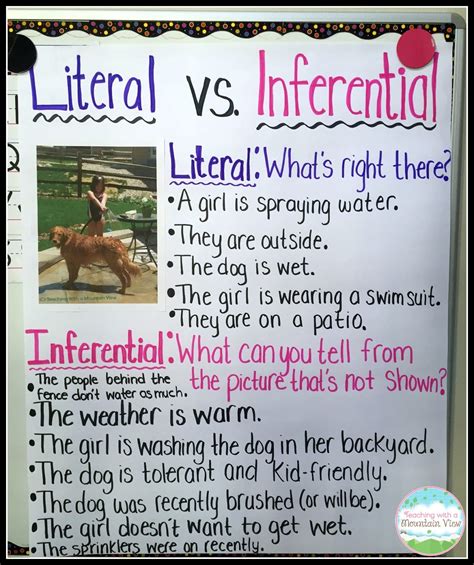 Literal vs. Inferential
Literal: What's right there?
•A girl is spraying water.
•They are outside.
•The dog is wet.
•The girl is wearing a swimsuit.
•They are on a patio.
©Teaching with a Mountain View
Inferential: What can you tell from
the picture that's not shown?
•The people behind the
fence don't water as much.
•The weather is warm.
•The girl is washing the dog in her backyard.
•The dog is tolerant and kid-friendly.
•The dog was recently brushed (or will be).
•The girl doesn't want to get wet.
•The sprinklers were on recently.
Teaching with a
Mountain View